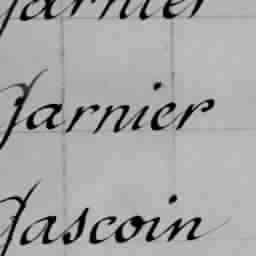 Garnier
Garnier
Gascoin